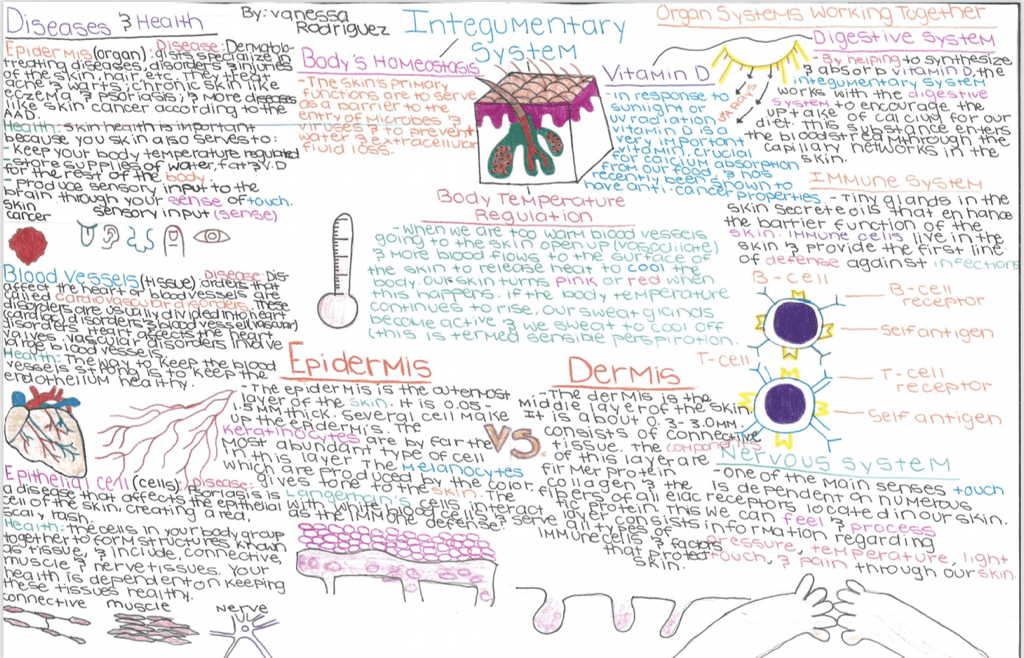 Diseases & Health
By: vanessa
Rodriguez
Epidermis (organ): Disease: Dermatolo-
gists specialize in
treating diseases, disorders & injuries
of the skin, hair, etc. They treat
acne & warts, chronic skin like
eczema & psoriasis, & more diseases
like skin cancer according to the
AAD.
Health: skin health is important
because you skin also serves to:
- Keep your body temperature regulated
- store supplies of water, fat, v. D
for the rest of the body
- produce sensory input to the
brain through your sense of touch.
skin
cancer
sensory input (sense)
Blood Vessels (tissue): Disease: Dis-
orders that
affect the heart or blood vessels are
called cardiovascular disorders. These
disorders are usually divided into heart
(cardiac) disorders & blood vessel (vascular)
disorders
valves. vascular disorders involve
blood vessels.
Health: The
to keep the blood
vessels strong is to keep the
endothelium healthy.
Epithelial cell (cells): Disease:
Psoriasis is
a disease that affects the epithelial
cell of the skin, creating a red,
scaly rash.
Health: The cells in your body group
together to form structures known
as tissue, & include, connective,
muscle & nerve tissues. Your
health is dependent on keeping
these tissues healthy.
connective
muscle
Nerve
Integumentary
System
Body's Homeostasis
- The skin's primary
functions are to serve
as a barrier to the
entry of microbes &
viruses & to prevent
water & extracellular
fluid loss.
Vitamin D
- in response to
sunlight or
uv radiation,
vitamin D is a
very important
crucial
for calcium absorption
from our food, & has
recently been shown to
have anti-cancer properties
UV RAYS
Body Temperature
Regulation
- When we are too warm blood vessels
going to the skin open up (vasodilate)
& more blood flows to the surface of
the skin to release heat to cool the
body. Our skin turns pink or red when
this happens. If the body temperature
continues to rise, our sweat glands
become active & we sweat to cool off
(this is termed sensible perspiration.
Epidermis
- The epidermis is the outermost
layer of the skin. It is 0.05 -
1.5mm thick. Several cell make
up the epidermis. The
keratinocytes are by far the
most abundant type of cell
in this layer. The melanocytes
which are produced by the color,
gives tone to the skin. The
Langerhan's cells interact
with white blood
as the immune defense.
vs
Dermis
- The dermis is the
middle layer of the skin.
It is about 0.3 - 3.0mm.
consists of connective
tissue. The components
of this layer are
firmer protein
collagen & the
fibers of an elac
protein. This
serve all types consists
immune cells & factors
that protect
skin.
Organ Systems Working Together
Digestive System
- By helping to synthesize
& absorb vitamin D, the
integumentary system
works with the digestive
system to encourage the
uptake of calcium for our
diet. this substance enters
the bloodstream through the
capillary networks in the
skin.
Immune System
- Tiny glands in the
skin secrete oils that enhance
the barrier function of the
skin. immune cells live in the
skin & provide the first line
of defense against infections
B-cell
B-cell
receptor
self antigen
T-cell
T-cell
receptor
Self antigen
Nervous System
- One of the main senses touch
is dependent on numerous
receptors located in our skin.
we can feel & process
information regarding
pressure, temperature, light
touch, & pain through our skin.